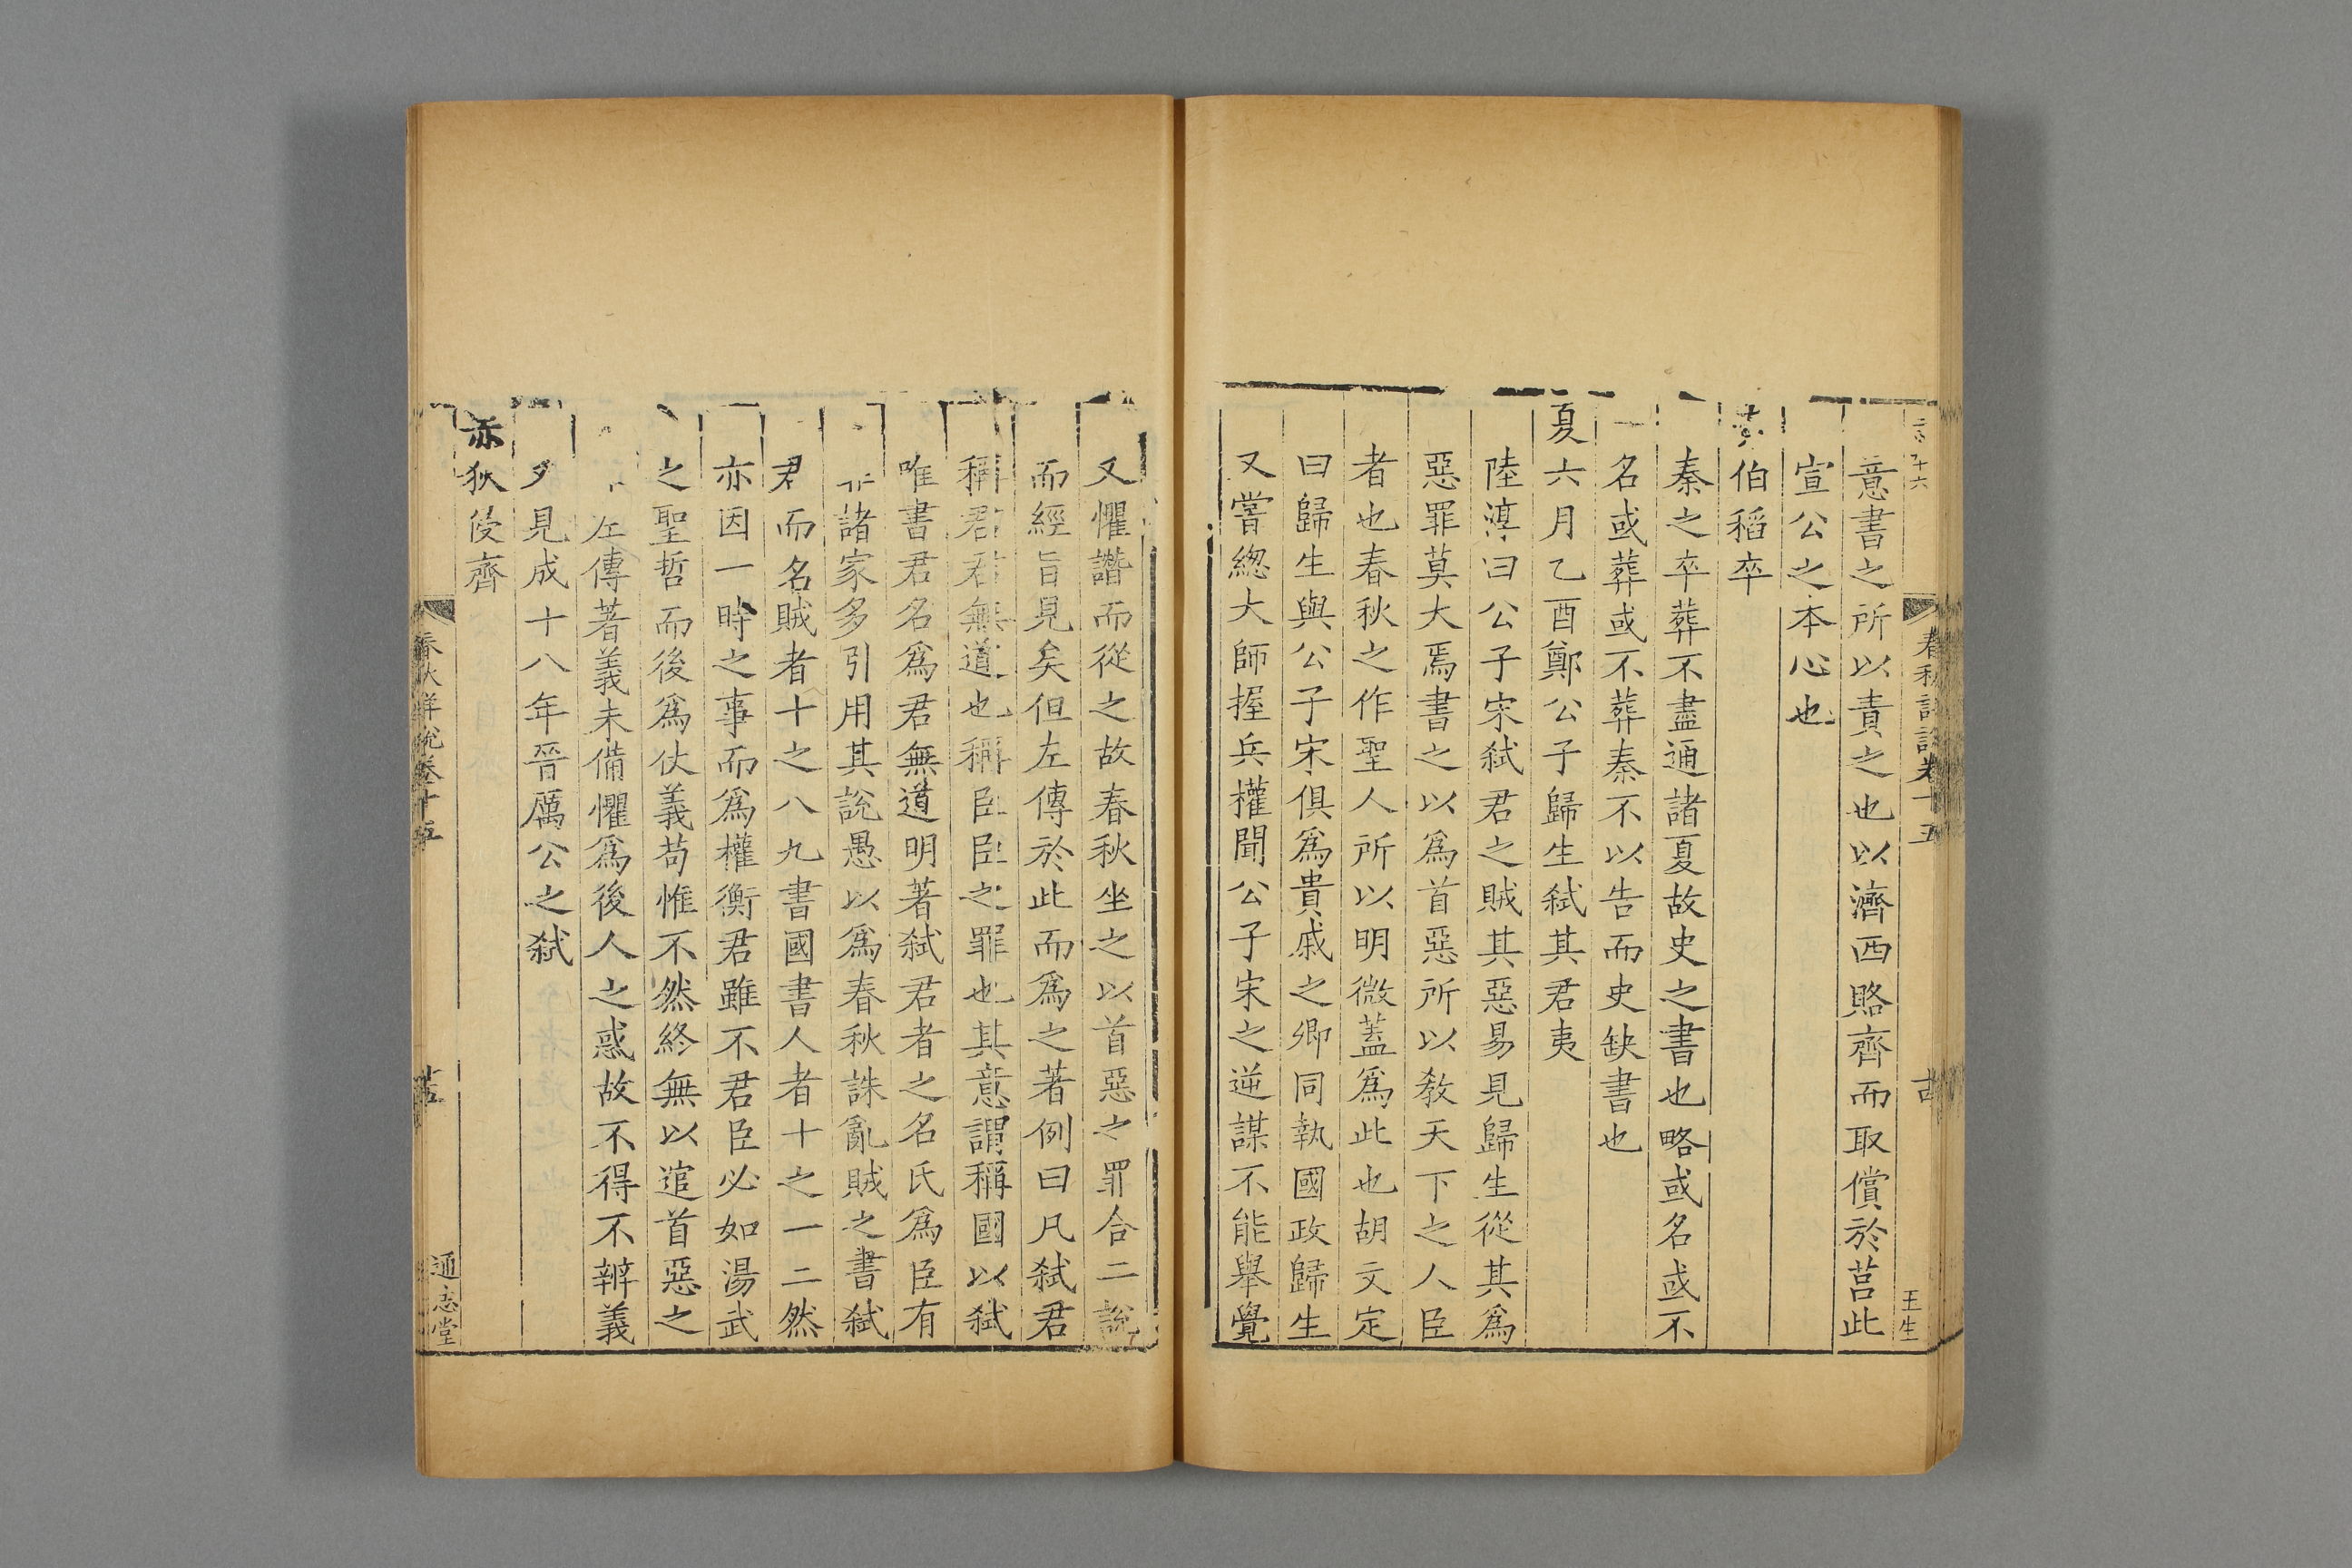 意書之所以責之也以濟西賂齊而取償於莒此
宣公之本心也
伯稻卒
秦之卒葬不盡通諸夏故史之書也略或名或不
名或葬或不葬秦不以告而史缺書也
夏六月乙酉鄭公子歸生弑其君夷
陸淳曰公子宋弑君之賊其惡易見歸生從其爲
惡罪莫大焉書之以爲首惡所以教天下之人臣
者也春秋之作聖人所以明微蓋爲此也胡文定
曰歸生與公子宋俱爲貴戚之卿同執國政歸生
又嘗緫大師握兵權聞公子宋之逆謀不能舉覺
又懼譖而從之故春秋坐之以首惡之罪合二說
而經旨見矣但左傳於此而爲之著例曰凡弑君
稱君君無道也稱臣臣之罪也其意謂稱國以弑
唯書君名爲君無道明著弑君者之名氏爲臣有
諸家多引用其說愚以爲春秋誅亂賊之書弑
君而名賊者十之八九書國書人者十之一二然
亦因一時之事而爲權衡君雖不君臣必如湯武
之聖哲而後爲仗義苟惟不然終無以逭首惡之
左傳著義未備懼爲後人之惑故不得不辨義
見成十八年晉厲公之弑
赤狄侵齊
春秋詳說卷十五
通志堂
王生